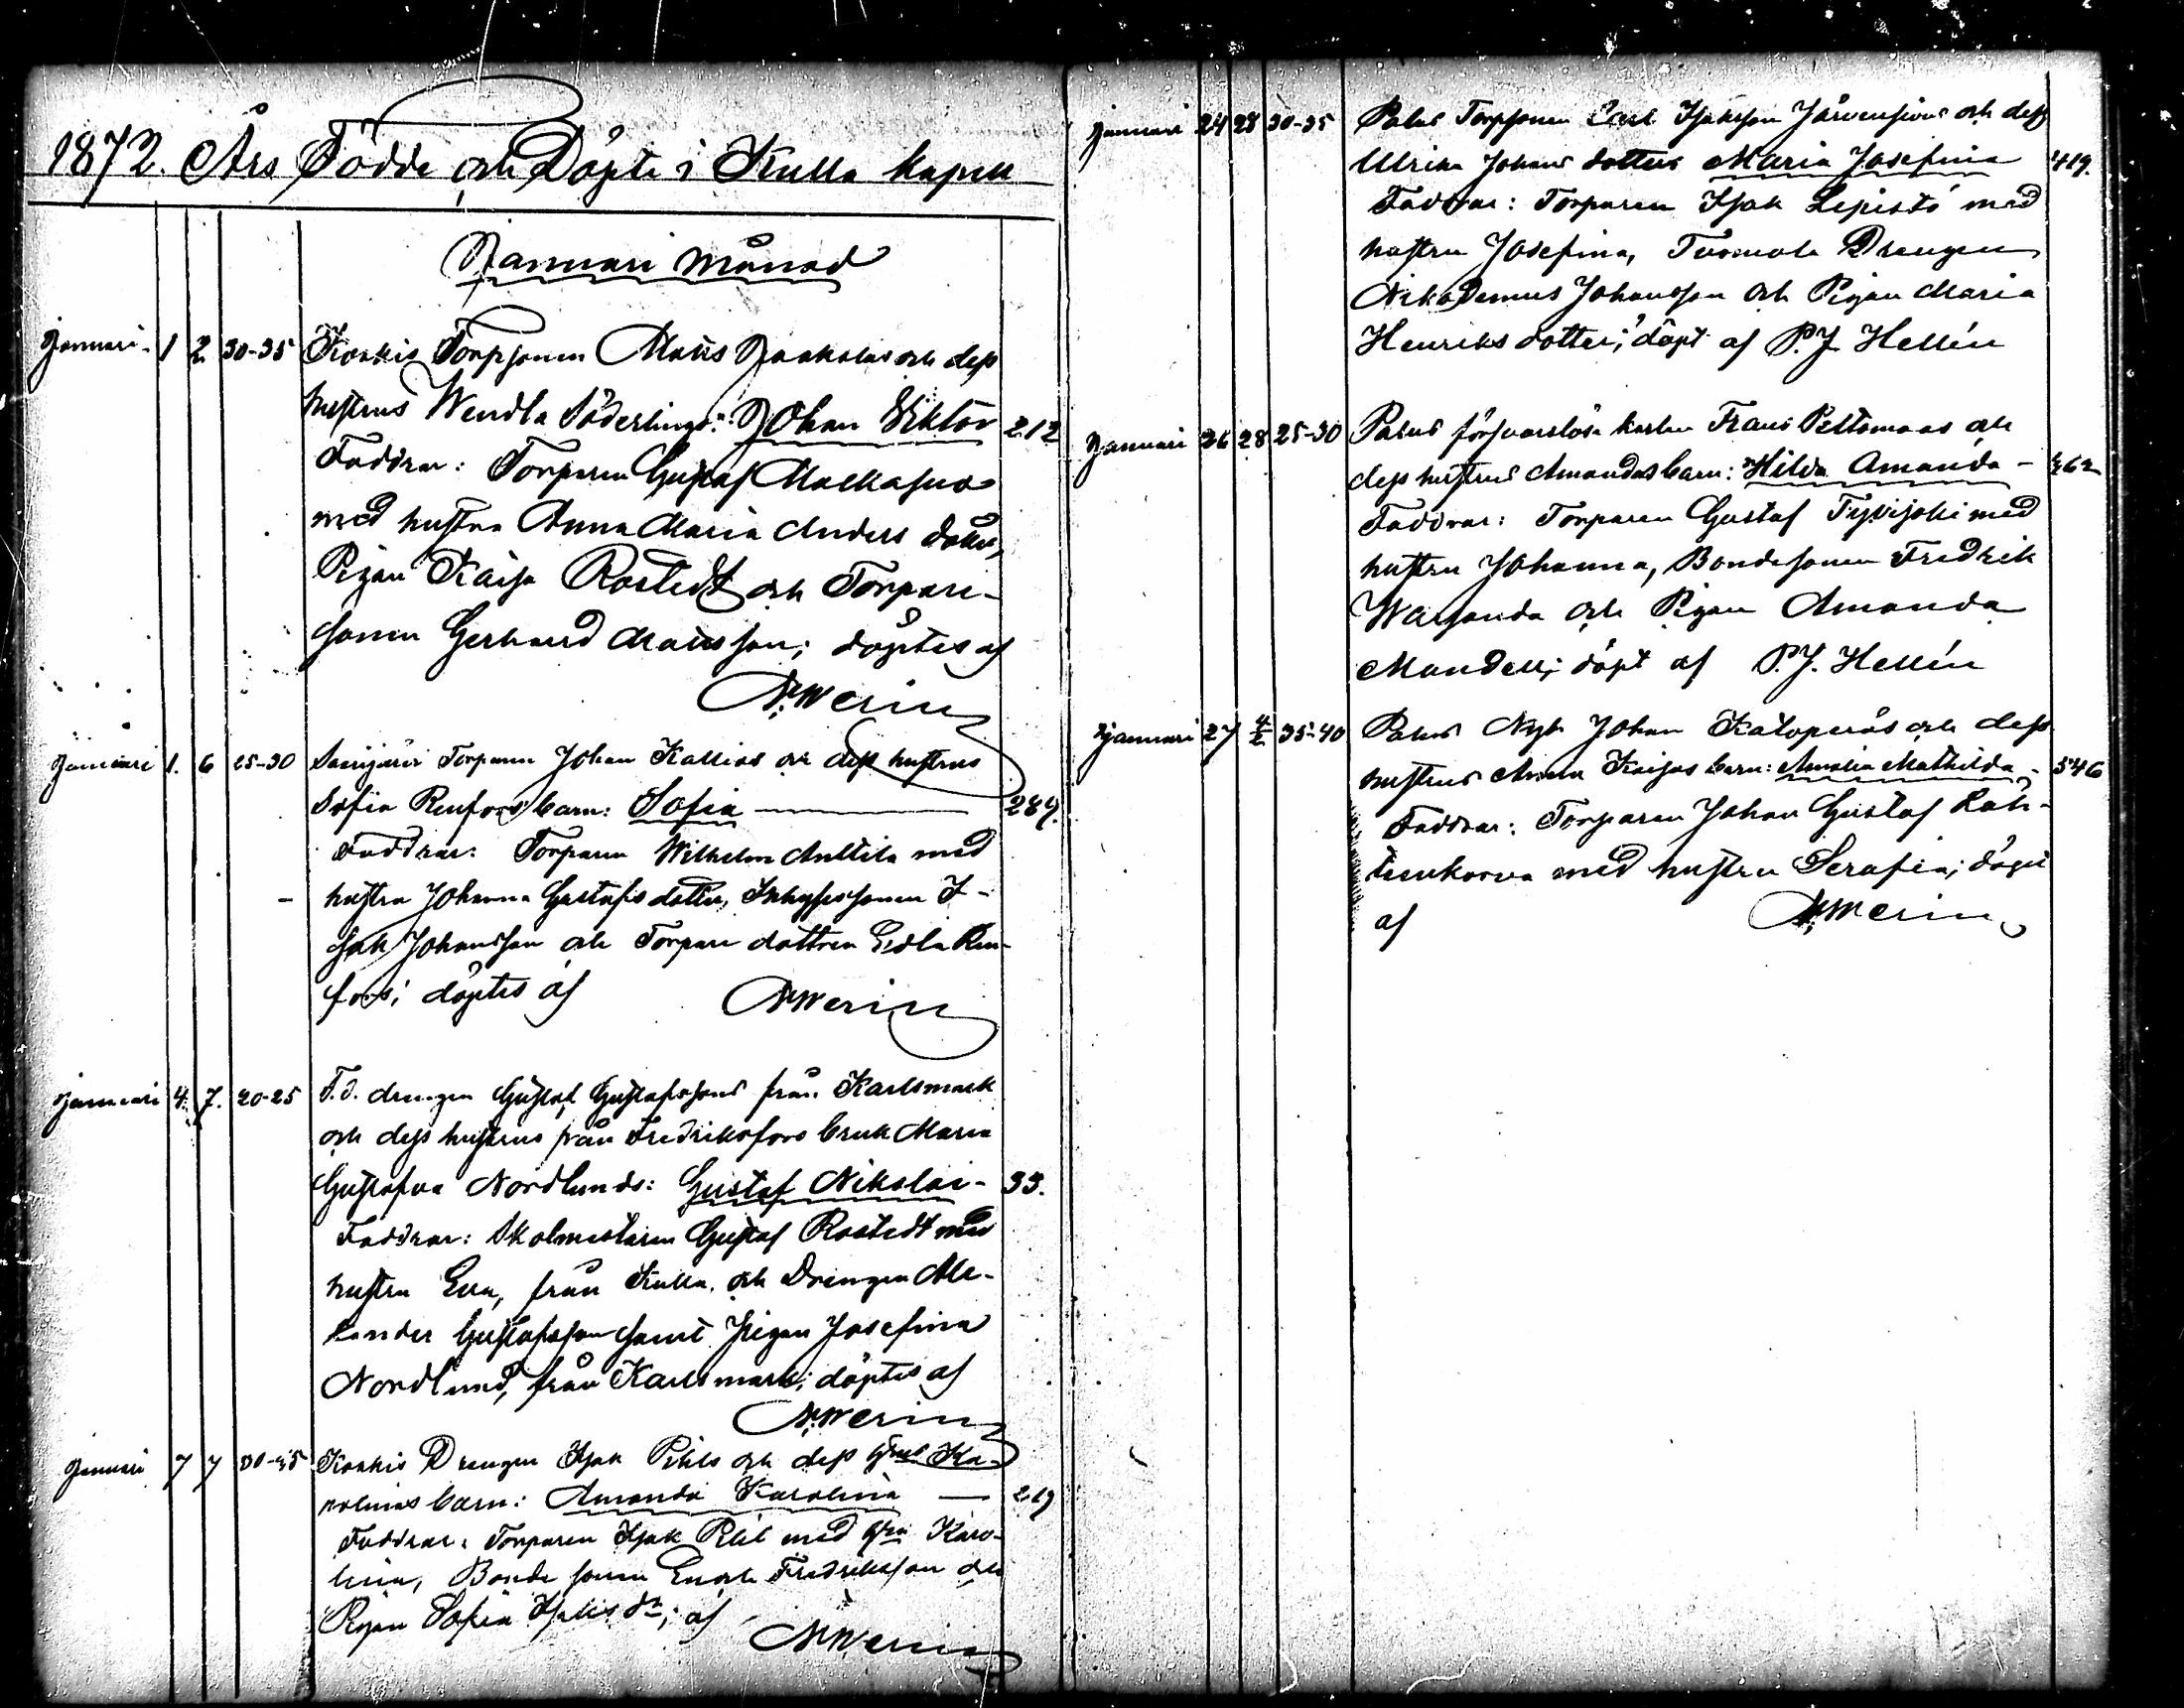 1872. Års Födde och Döpte i Kulla kapell
Januari månad
Januari 1 2 30-35 Koskis Torpsonen Matts Jaakolas och dess
hustrus Wendla Söderlings: Johan Viktor 212
Faddrar: Torparen Gustaf Malkasuo
med hustru Anna Maria Anders dotter,
Pigan Kaisa Rostedt och Torpare-
sonen Gerhard Mattsson; döptes af
Werin
Januari 1. 6 25-30 Torparen Johan Kallios och dess hustrus
Sofia Renfors barn: Sofia — 289.
Faddrar: Torparen Wilhelm Anttila med
hustru Johanna Gustafs dotter, Inhyses sonen I-
sak Johansson och Torpare dottren Edla Ren-
fors; döptes af Werin
Januari 4. 7. 20-25 F.d. drengen Gustaf Gustafssons från Karlsmark
och dess hustrus från Fredriksfors bruk Maria
Gustafva Nordlunds: Gustaf Nikolai - 33.
Faddrar: Skolmästaren Gustaf Rostedt med
hustru Eva, från Kulla, och Drengen Ale-
xander Gustafsson samt Pigan Josefina
Nordlund, från Karlsmark; döptes af
Werin
Januari 7 7 Koskis Drengen Isak Pihls och dess hrus Ka-
rolinas barn: Amanda Karolina — 219
Faddrar: Torparen Isak Pihl med hru Karo-
lina, Bonde sonen Enok Fredriksson och
Pigan Sofia Isaks dr; af Werin
Januari 24 28 30-35 Palus Torpsonen Carl Isaksson Järvensivus och dess
Ulrika Johans dotters Maria Josefina 419.
Faddrar: Torparen Isak Lepistö med
hustru Josefina, Drengen
Nikodemus Johansson och Pigan Maria
Henriks dotter; döpt af P.J. Hellén
Januari 26 28 25-30 Palus försvarslöse karlen Frans Peltomaas och
dess hustrus Amandas barn: Hilda Amanda -
Faddrar: Torparen Gustaf Tyvijoki med
hustru Johanna, Bondesonen Fredrik
Warsanda och Pigan Amanda
Mandell; döpt af P.J. Hellén
Januari 27 4/2 35-40 Palus Nyb. Johan Katoperäs och dess
hustrus Anna Kaisas barn: Amalia Mathilda - 546
Faddrar: Torparen Johan Gustaf Lah-
tenkorva med hustru Serafia; döpt
af Werin